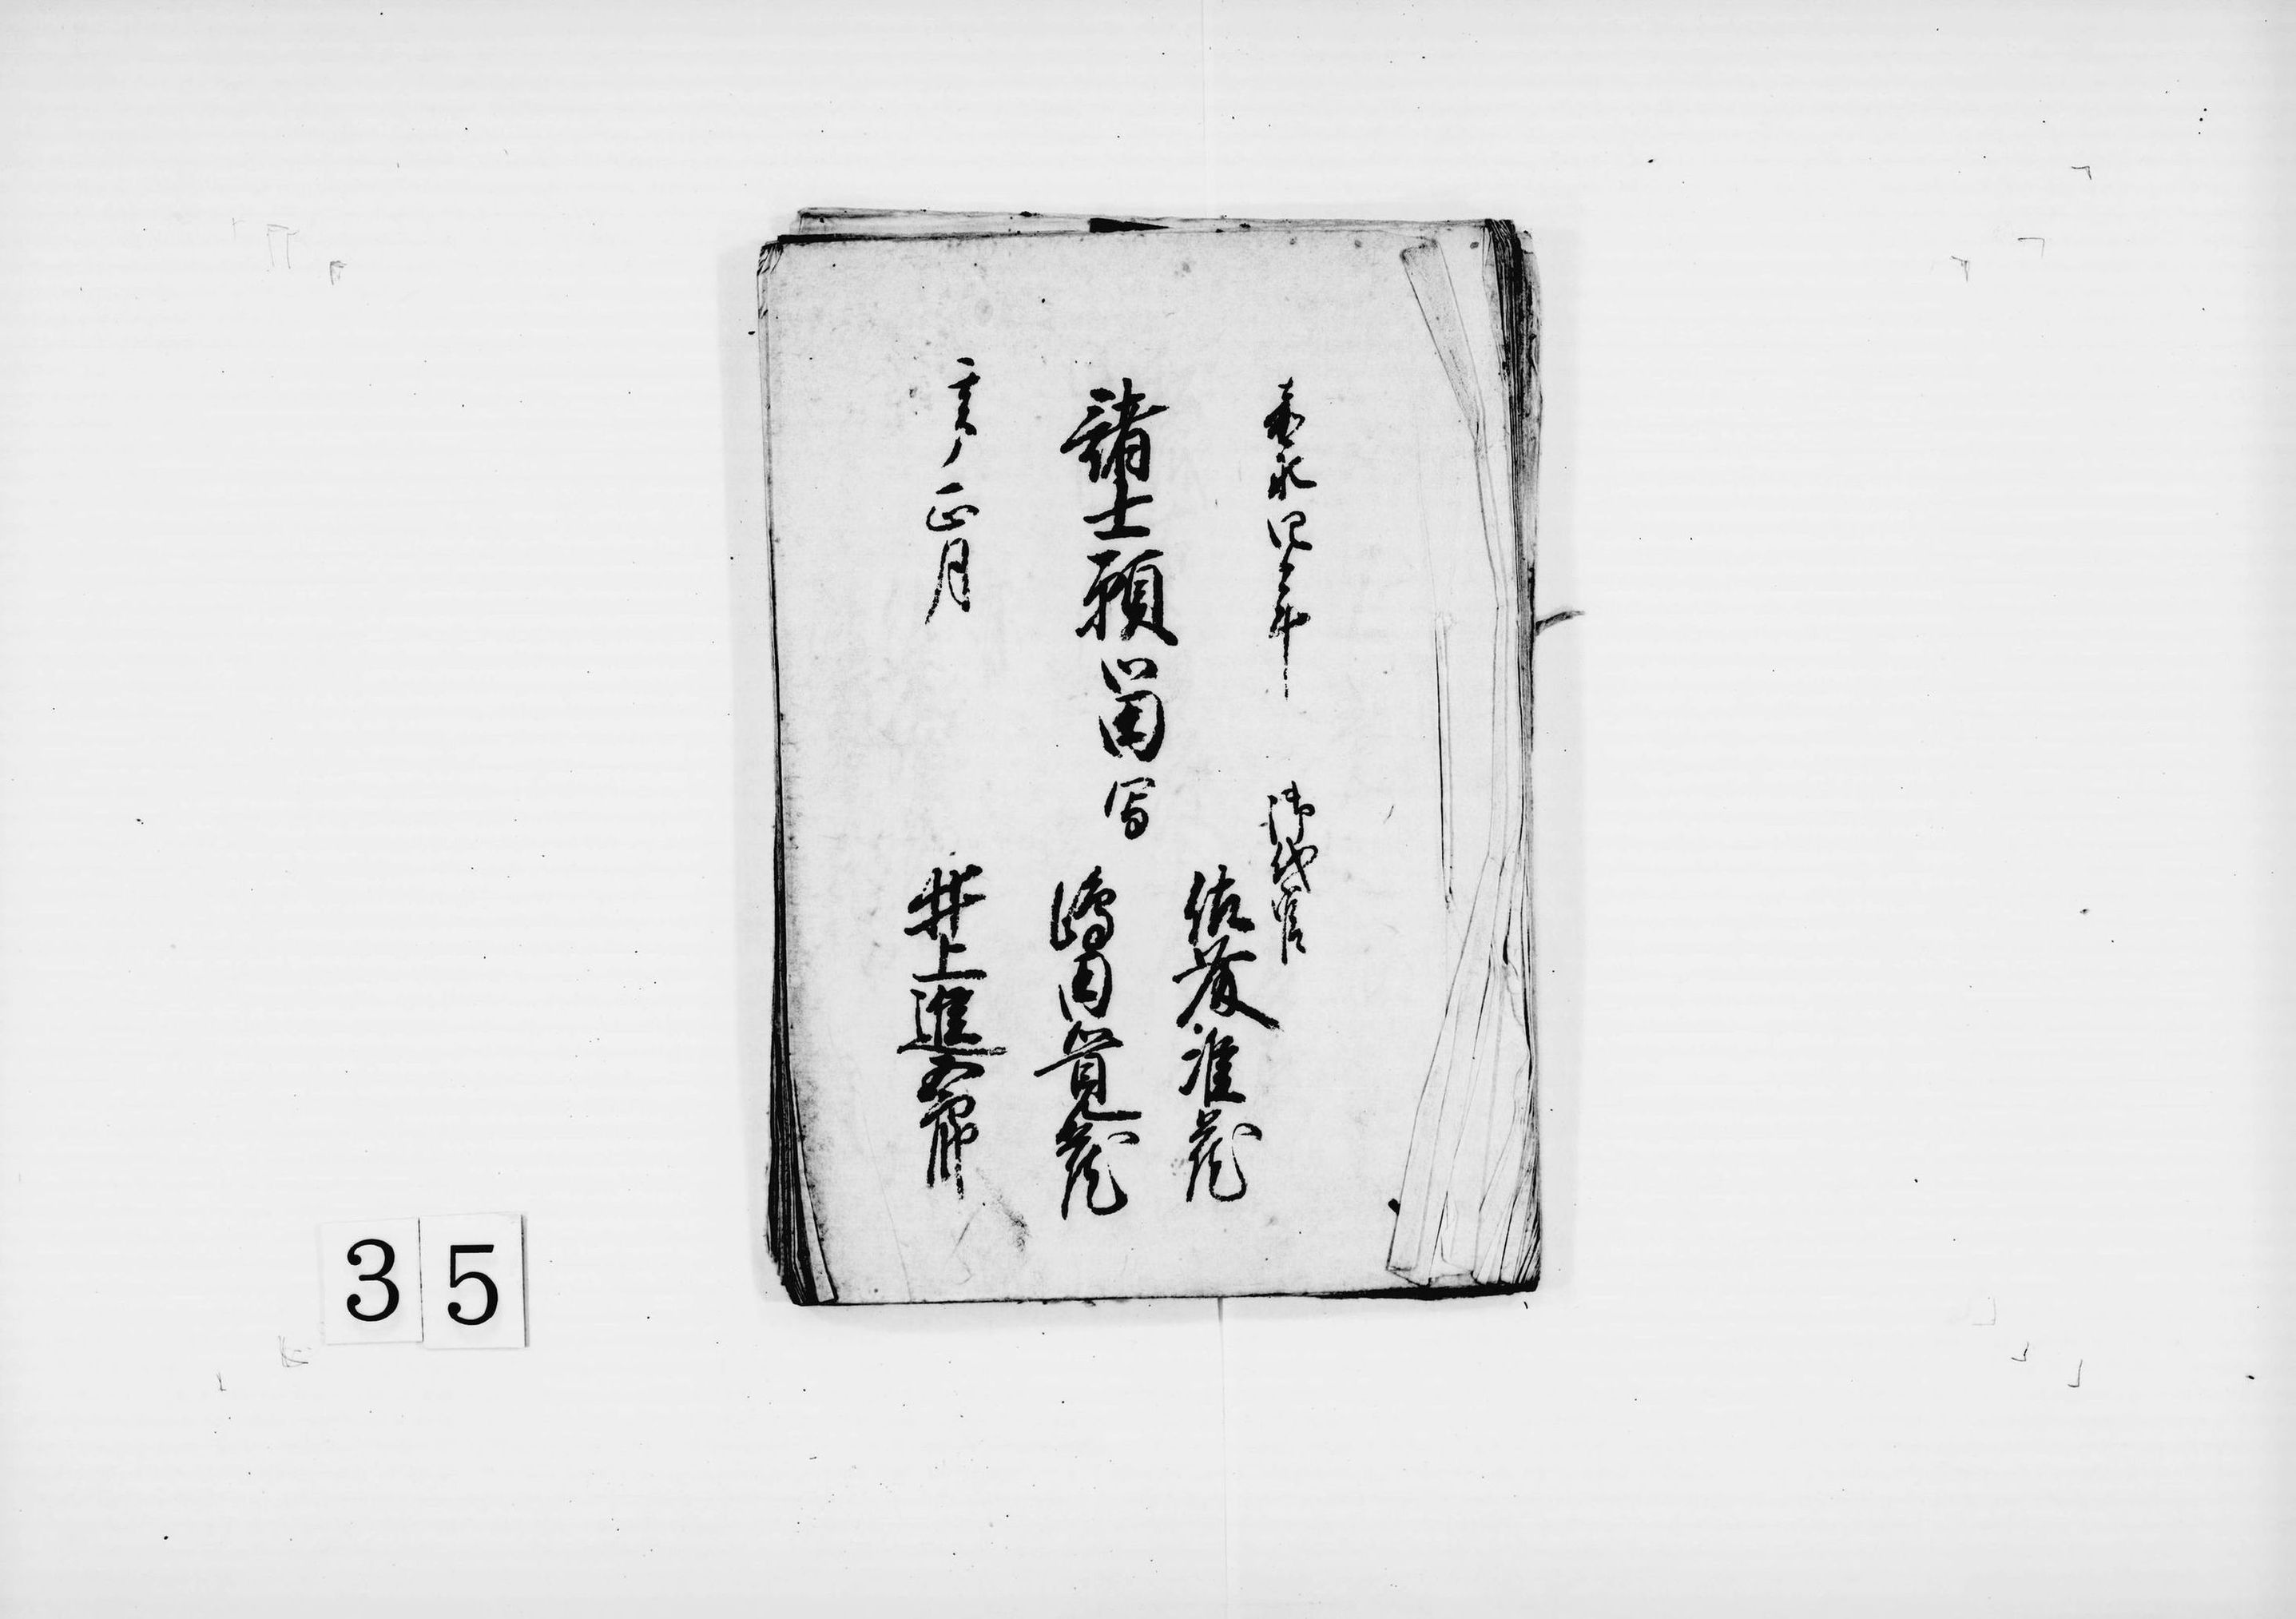 嘉永四年
諸士願留写
亥ノ正月
御代官
佐藤准蔵
嶋田覚蔵
井上進五郎
35